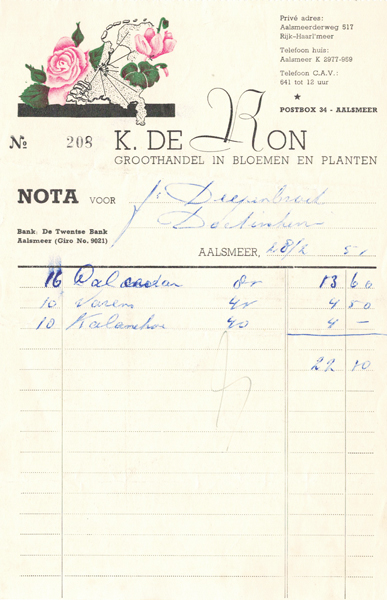 Privé adres:
Aalsmeerderweg 517
Rijk-Haarl'meer
Telefoon huis:
Aalsmeer K 2977-959
Telefoon C.A.V.:
641 tot 12 uur
★
POSTBOX 34 - AALSMEER
№ 208 K. DE RON
GROOTHANDEL IN BLOEMEN EN PLANTEN
NOTA VOOR Diepenbrock
Doetinchem
Bank: De Twentse Bank
Aalsmeer (Giro No. 9021)
AALSMEER, 28/2 50
16 85 13 60
10 Varens 45 4 50
10 Kalanchoe 40 4 —
22 10